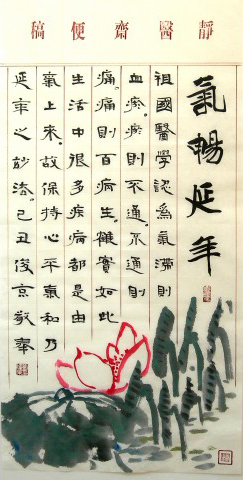 靜醫齋便稿
氣暢延年
祖國醫學認爲氣滯則
血瘀。瘀則不通。不通則
痛。痛則百病生。雖實如此
生活中很多疾病都是由
氣上來。故保持心平氣和乃
延年之妙法。己丑後京敬奉